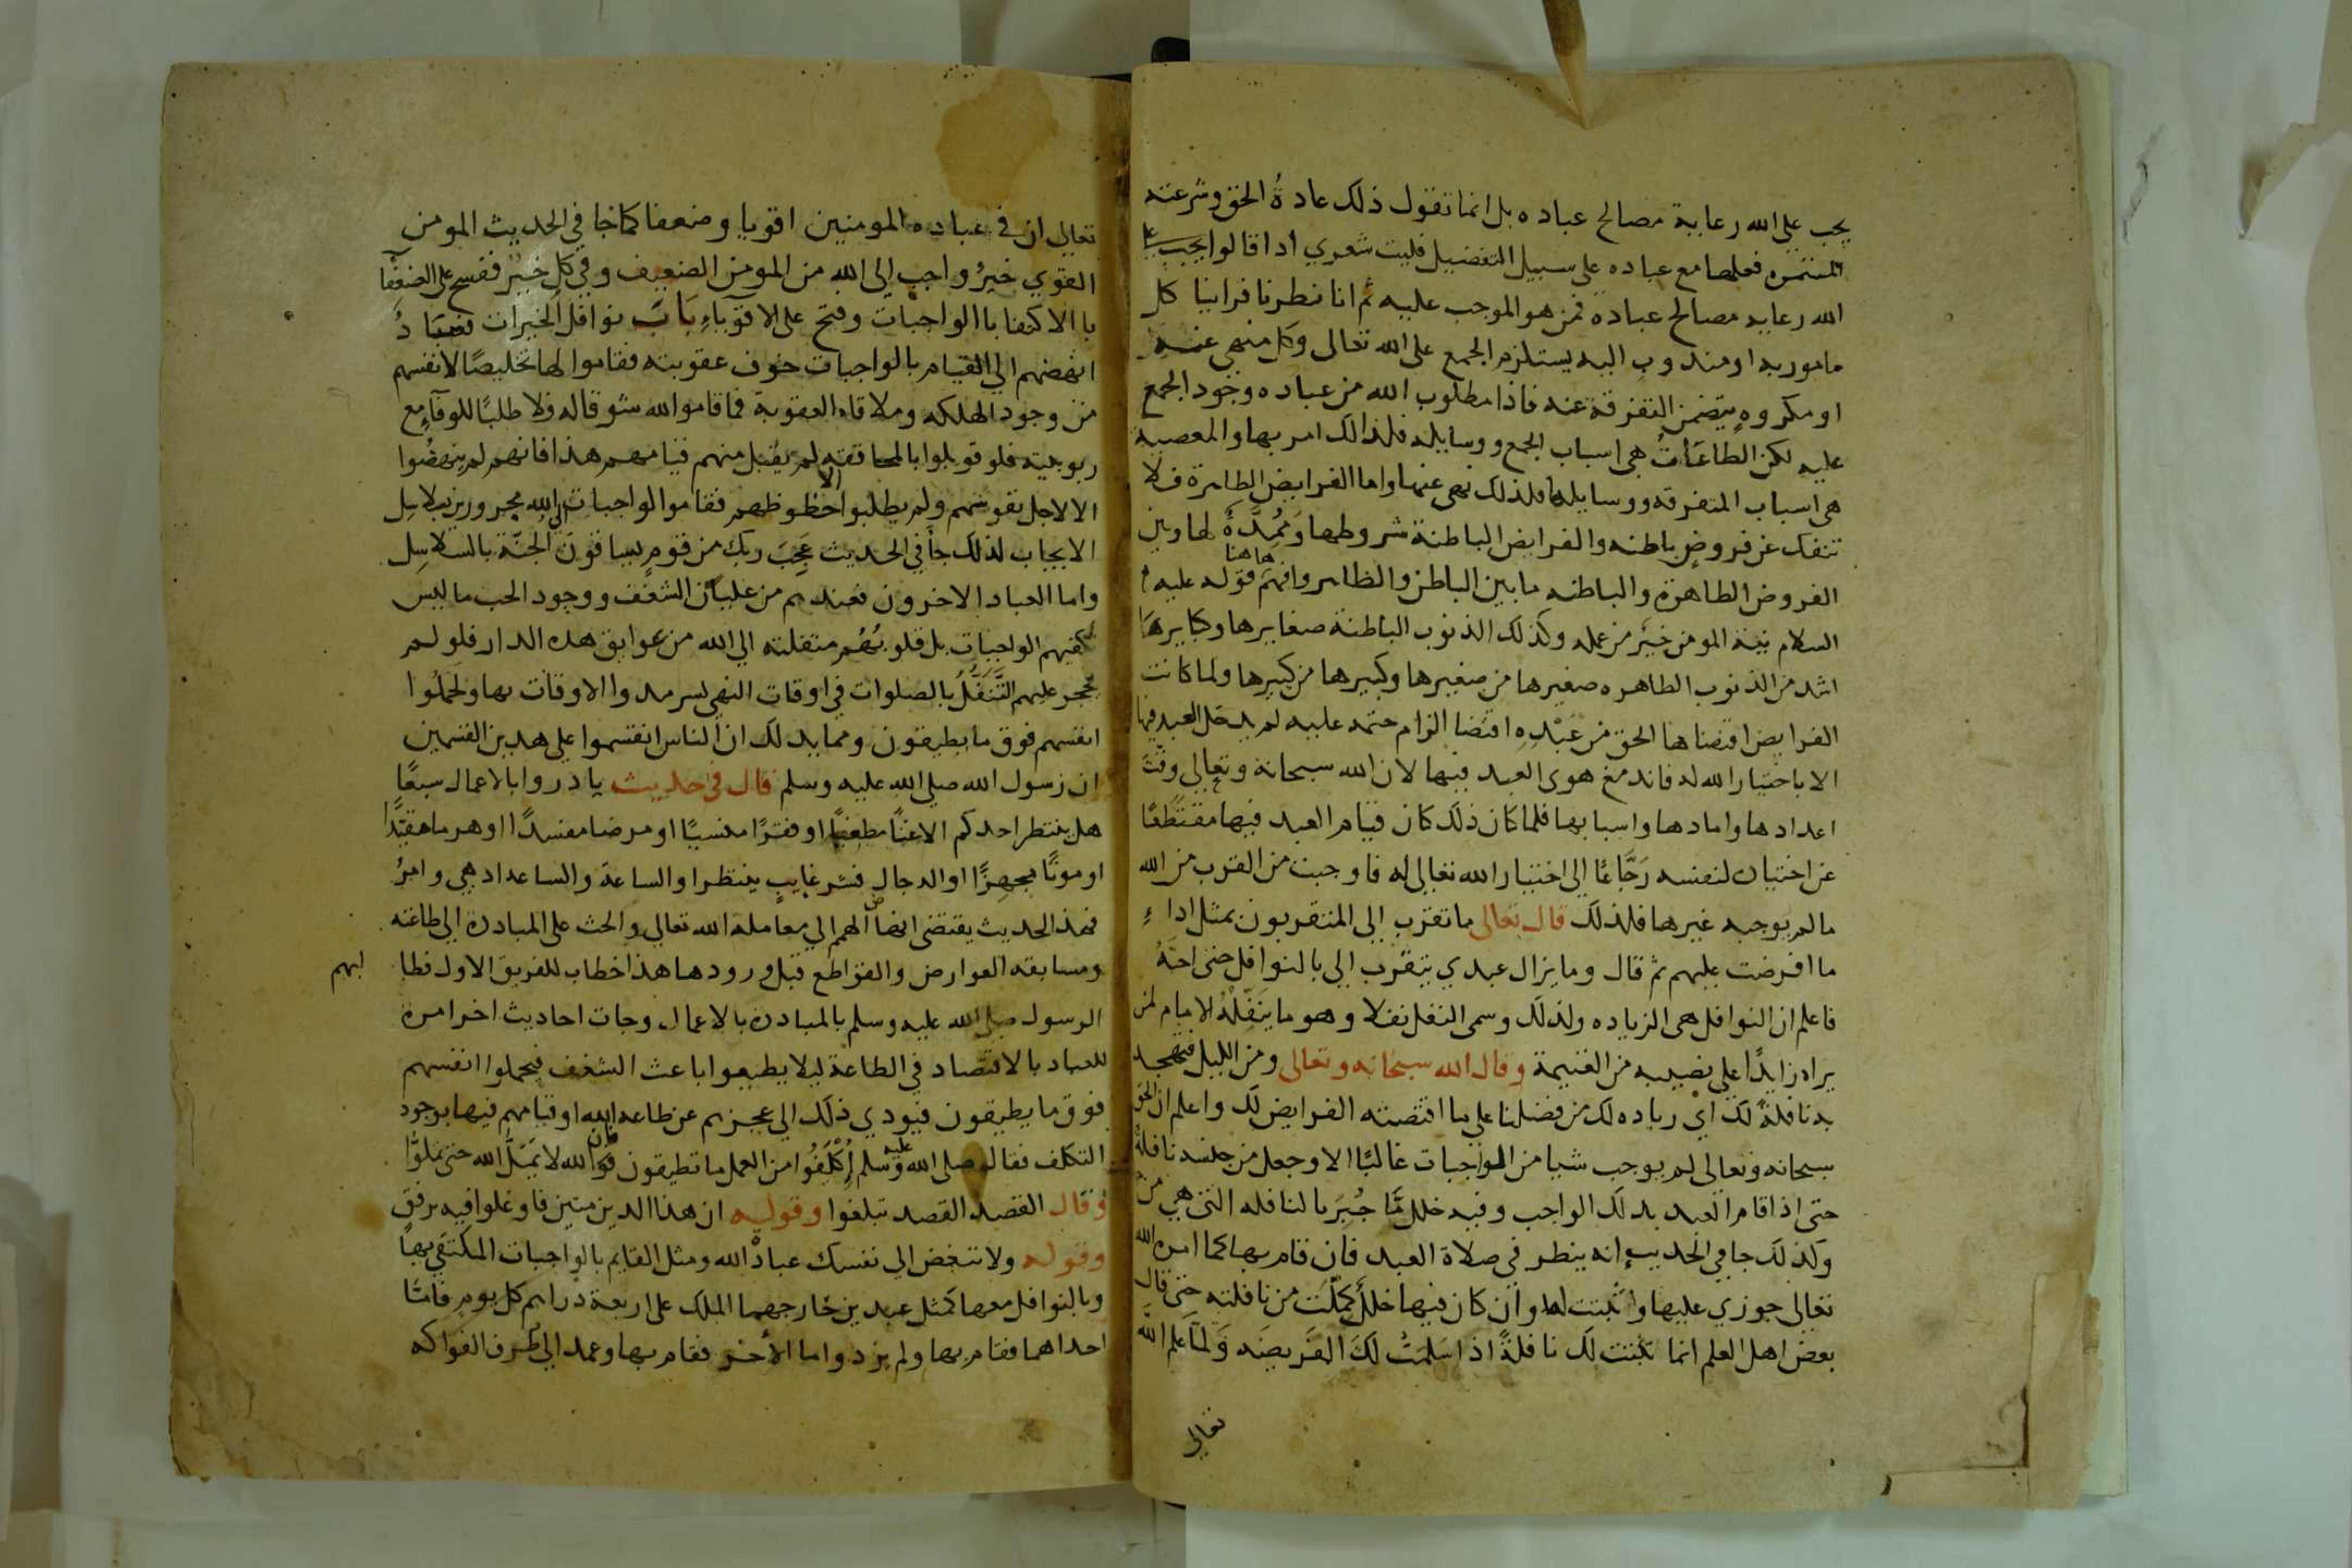 يجب على الله رعاية مصالح عباده بل انما نقول ذلك عادةُ الحق وشرعته
المستمره فعلها مع عباده على سبيل التفضيل فليت شعري اذا قالوا يجب على
الله رعايه مصالح عباده فمن هو الموجب عليه ثم انا نظرنا فراينا كل
مامور به او مندوب اليه يستلزم الجمع على الله تعالى وكل منهى عنه
او مكروهٍ يتضمن التفرقة عنه فاذا مطلوب الله من عباده وجود الجمع
عليه لكن الطاعَاتُ هى اسباب الجمع ووسايله فلذالك امر بها والمعصية
هى اسباب المتفرقه ووسايلها فلذلك نهى عنها واما الفرايض الظاهرة فلا
تنفك عن فروضٍ باطنه والفرايض الباطنة شروطها ومُمِدَّةٌ لها وبين
الفروض الطاهرة والباطنه ما بين الباطن والظاهر وافهم هاهنا قوله عليه
السلام نية المومن خيرٌ من عمله وكذلك الذنوب الباطنة صغايرها وكبايرها
اشد من الذنوب الظاهره صغيرها من صغيرها وكبيرها من كبيرها ولما كانت
الفرايض اقتضاها الحق من عَبْدِهِ اقتضا الزام حتمه عليه لم يدخل العبد فيها
الا باختيار الله له فاندمغ هوى العبد فيها لان الله سبحانه وتعالى وقّتَ
اعدادها وامادها واسبابها فلما كان ذلك كان قيام العبد فيها مقتطعًا
عن اختياره لنفسه رَجَّاعًا الى اختيار الله تعالى له فاوجبت من القرب من الله
مالم يوجبه غيرها فلذلك قال تعالى ما تقرب إلى المتقربون بمثل اداءِ
ما افرضت عليهم ثم قال وما يزال عبدي يتقرب الى بالنوافل حتى احبَّهُ
فاعلم ان النوافل هى الزياده ولذلك وسمى النفل نفلا وهو ما يَنَفِّلْهُ الامام لمن
يراه زايدًا على نصيبه من الغنيمة وقال الله سبحانه وتعالى ومن الليل فتهجد
به نافلةً لك اي زياده لك من فضلنا على ما اقتضته الفرايض لك واعلم ان الحق
سبحانه وتعالى لم يوجب شيا من الواجبات غالبًا الا وجعل من جنسه نافلةً
حتى اذا قام العبد بذلك الواجب وفيه خلل مَّا جُبِرَ بالنافله التى هي من
ولذلك جا في الحديث إنه ينظر فى صلاة العبد فان قام بها كما امره الله
تعالى جوزي عليها واثبتت لها وان كان فيها خللٌ كمِّلَتْ من نافلته حتى قال
بعض اهل العلم انما تثبت لك نافلةً اذا سَلِمَتْ لَكَ الفريضَه وَلمّا علم الله
تعالى
تعالى ان فى عباده المومنين اقويا وضعفا كما جا في الحديث المومن
القوي خيرٌ واحب إلى الله من المومن الضعيف وفي كلٍ خيرٌ ففسح على الضعفآ
با الاكتفا با الواجبات وفتح على الاقوياءِ بَابَ نوافل الخيرات فعبَادٌ
انهضهم الى القيام بالواجبات خوف عقوبته فقاموا لها تخليصًا لانفسهم
من وجود الهلكه وملاقاه العقوبة فما قاموا لله شوقا له ولا طلبًا للوفآءِ مع
ربوبيته فلو قوبلوا بالمحاققه لم يقبل منهم قيامهم هذا فانهم لم ينهضُوا
الا لاجل نفوسهم ولم يطلبوا الا حظوظهم فقاموا لواجبات الله مجرورين بسلاسل
الايجاب لذلك جآ في الحديث عَجِبَ ربك من قومٍ يساقون الى الجنّة بالسلاسِل
واما العباد الاخرون فعندهم من غليان الشغف ووجود الحب ما ليس
يكفيهم الواجبات بل قلوبُهُم متفلته الى الله من عوايق هذه الدار فلولم
يحجر عليهم التَّنَفُّلُ بالصلوات في اوقات النهى لسرمدوا الاوقات بها ولحَملُوا
انفسهم فوق ما يطيقون ومما يدلك ان الناس انقسموا على هدين القسمين
ان رسول الله صلى الله عليه وسلم قال فى حديث بادروا بالاعمال سبعًا
هل ينتظر احدكم الا غنًا مطغيًا او فقرًا منسيًا او مرضا مفسدًا او هرما مفنّدًا
او موتًا مجهزًا او الدجال فشر غايبٍ ينتظر او الساعةَ والساعه ادهى وامرُ
فهذا الحديث يقتضى انهاض الهمم الى معاملة الله تعالى والحث على المبادرة الى طاعته
ومسابقه العوارض والقواطع قبل ورودها هذا خطاب للفريق الاول فطالبهم
الرسول صلى الله عليه وسلم بالمبادرة بالاعمال وجات احاديث اخر امره
للعباد بالاقتصاد في الطاعة ليلا يطيعوا باعث الشغف فيحملوا انفسهم
فوق ما يطيقون فيودي ذلك الى عجزهم عن طاعه الله او قيامهم فيها بوجود
التكلف فقال صلى الله عليه وسلم إِكْلَفُوا من العمل ما تطيقون فوالله لا يَمَلُّ الله حتى تملوُّا
وقال القصد القصد تبلغوا وقوله ان هذا الدين متين فاوغلوا فيه برفق
وقوله ولا تبغض الى نفسك عبادة الله ومثل القايم بالواجبات المكتفى بها
وبالنوافل معها كمثل عبدين خارجهما الملك على اربعة دراهم كل يومٍ فامَّا
احداهما فقام بها ولم يزد واما الأخر فقام بها وعمد الى طرف الفواكه